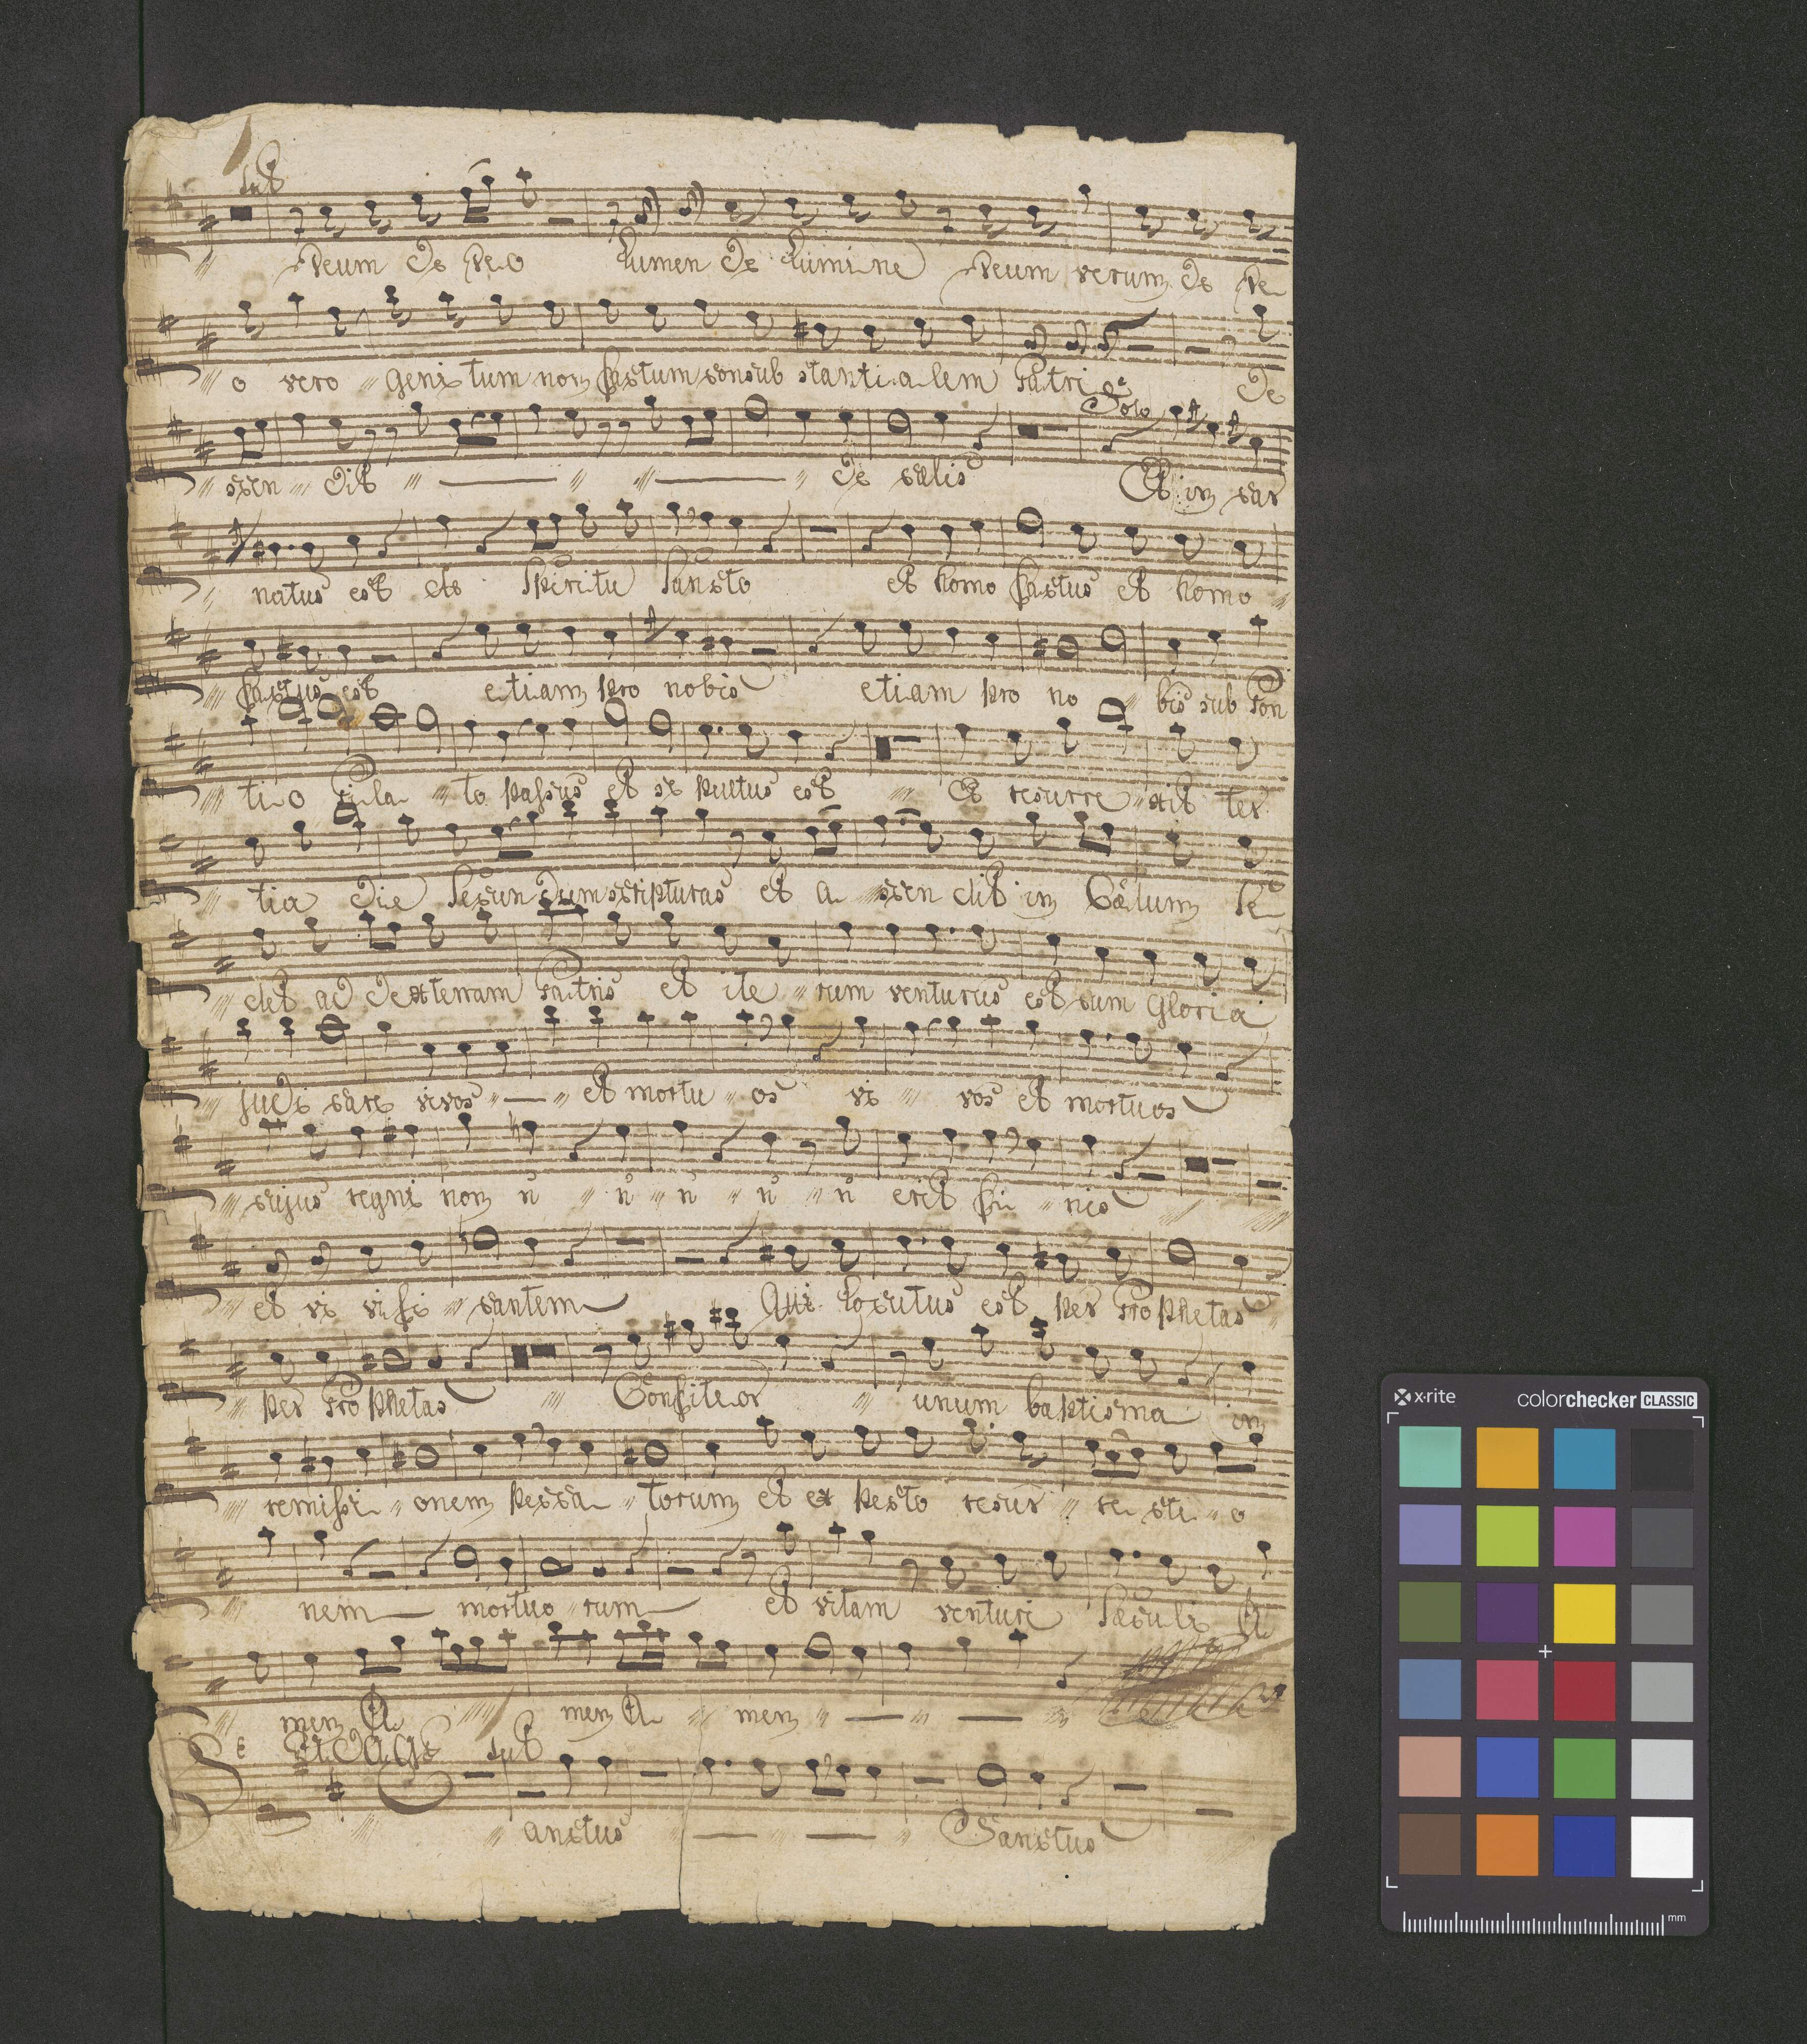 Deum de Deo Lumen de Lumine Deum verum de De
o vero genitum non factum consub stanti-a-lem Patri de
Solo
scen dit de cælis Et in car
natus est ete Spiritu Sancto et homo factus et homo
factus est etiam pro nobis etiam pro no bis sub Pon
ti-o Pi-la to passus et se pultus est Et resurre xit ter
tia die Secun dum scripturas et a scen dit in Cœlum Se
det ad dexterram Patris et ite rum venturus est cum Gloria
judi care vivos et mortu os vi vos et mortuos
cujus regni non n n n n n erit fi nis
et vi vifi cantem Qui locutus est per Prophetas
per Prophetas Confiteor unum baptisma in
remissi onem pecca torum et ex pecto resur re cti o
nem mortuo rum et vitam venturi Sæculi A
men A men A men
Sanctus Sanctus
x-rite
colorchecker CLASSIC
mm